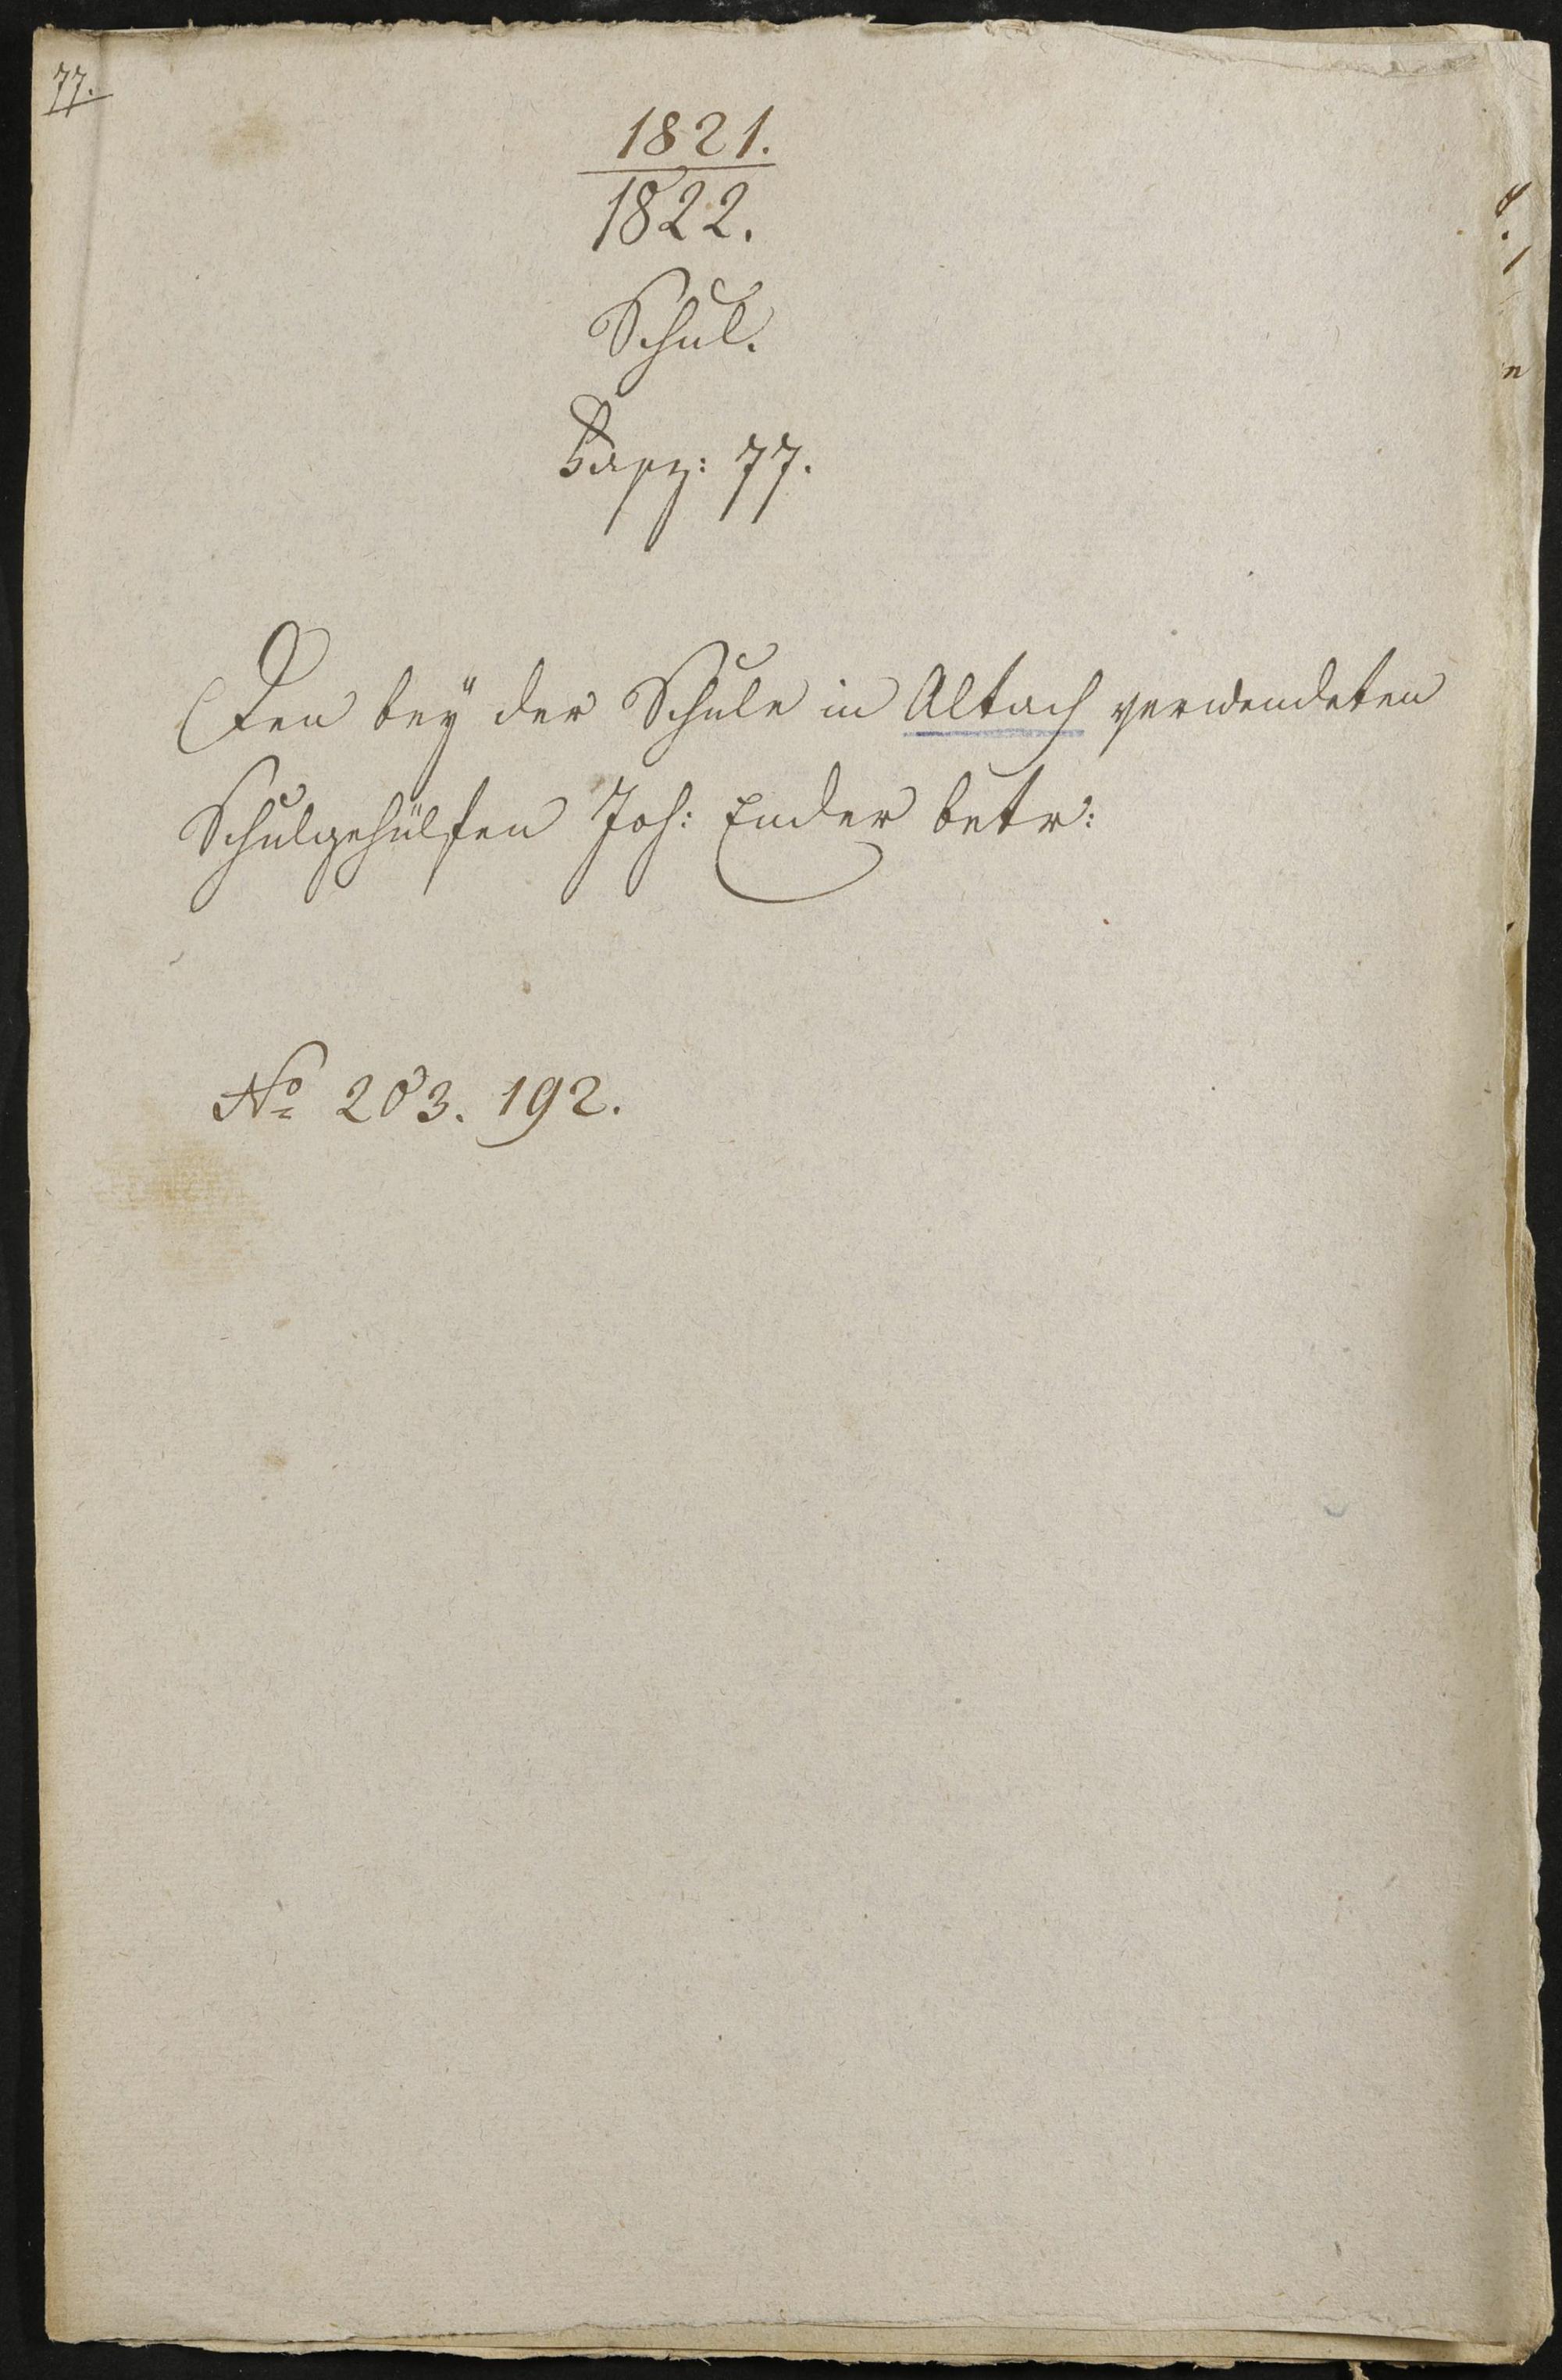 77.
1821.
1822.
Schul.
Fasz: 77.
Den bey der Schule in Altach verwendeten
Schulgehülfen Joh: Ender betr:
No 203. 192.